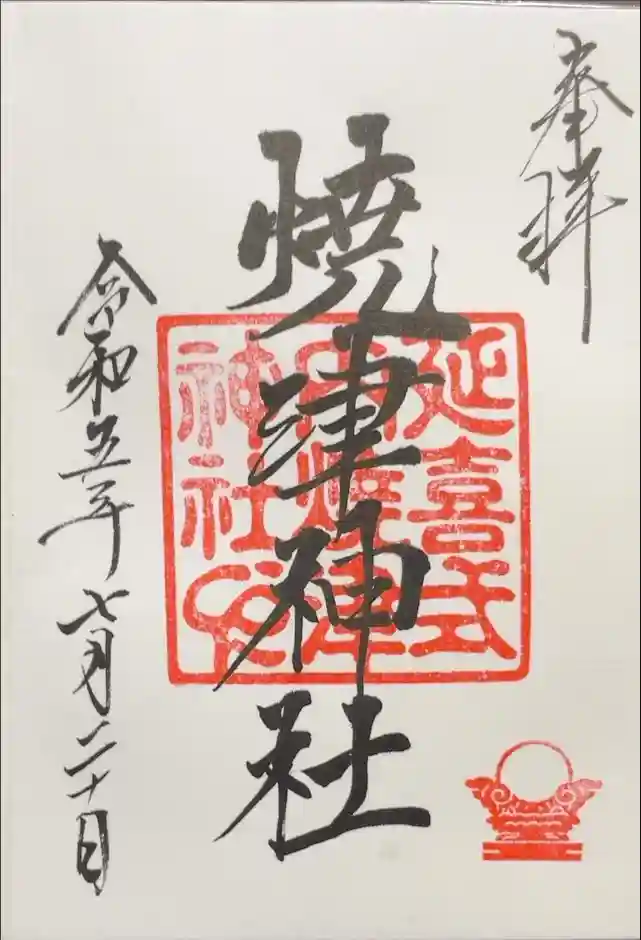 奉拝
焼津神社
延喜式
内焼津
神社印
令和五年七月二十日